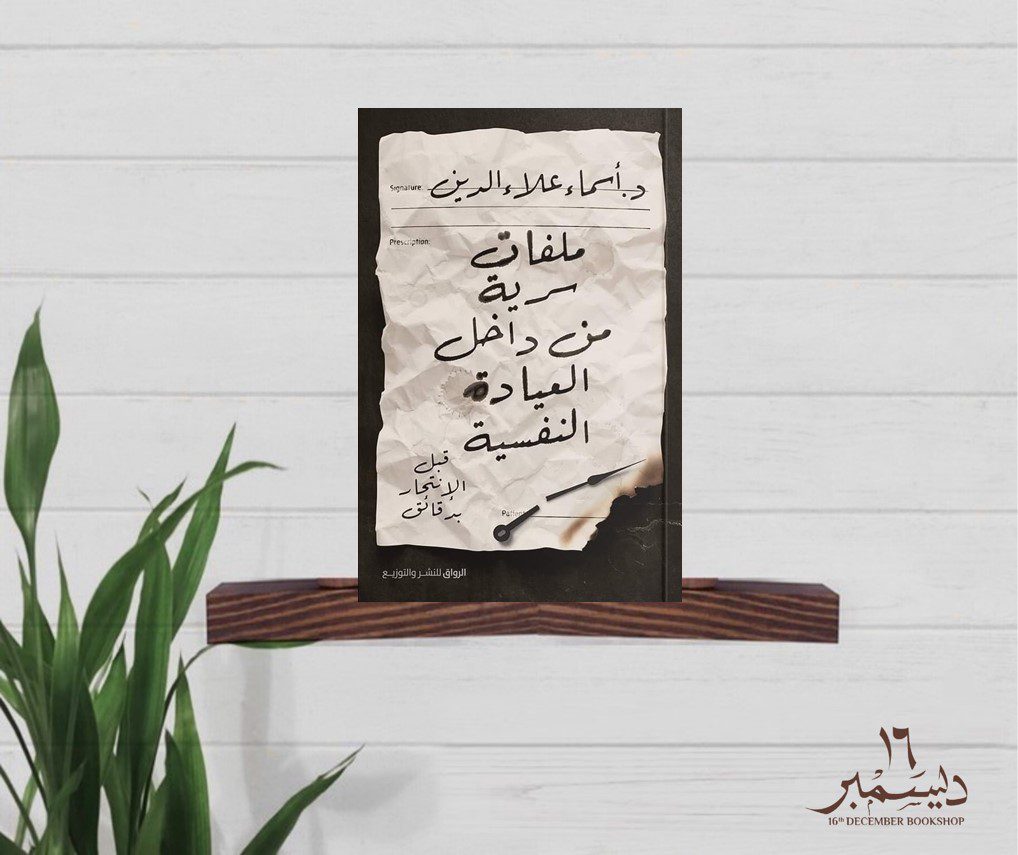 Signature: د. أسماء علاء الدين
Prescription:
ملفات
سرية
من داخل
العيادة
النفسية
قبل
الإنتحار
بدقائق
الرواق للنشر والتوزيع
١٦
ديسمبر
16th DECEMBER BOOKSHOP